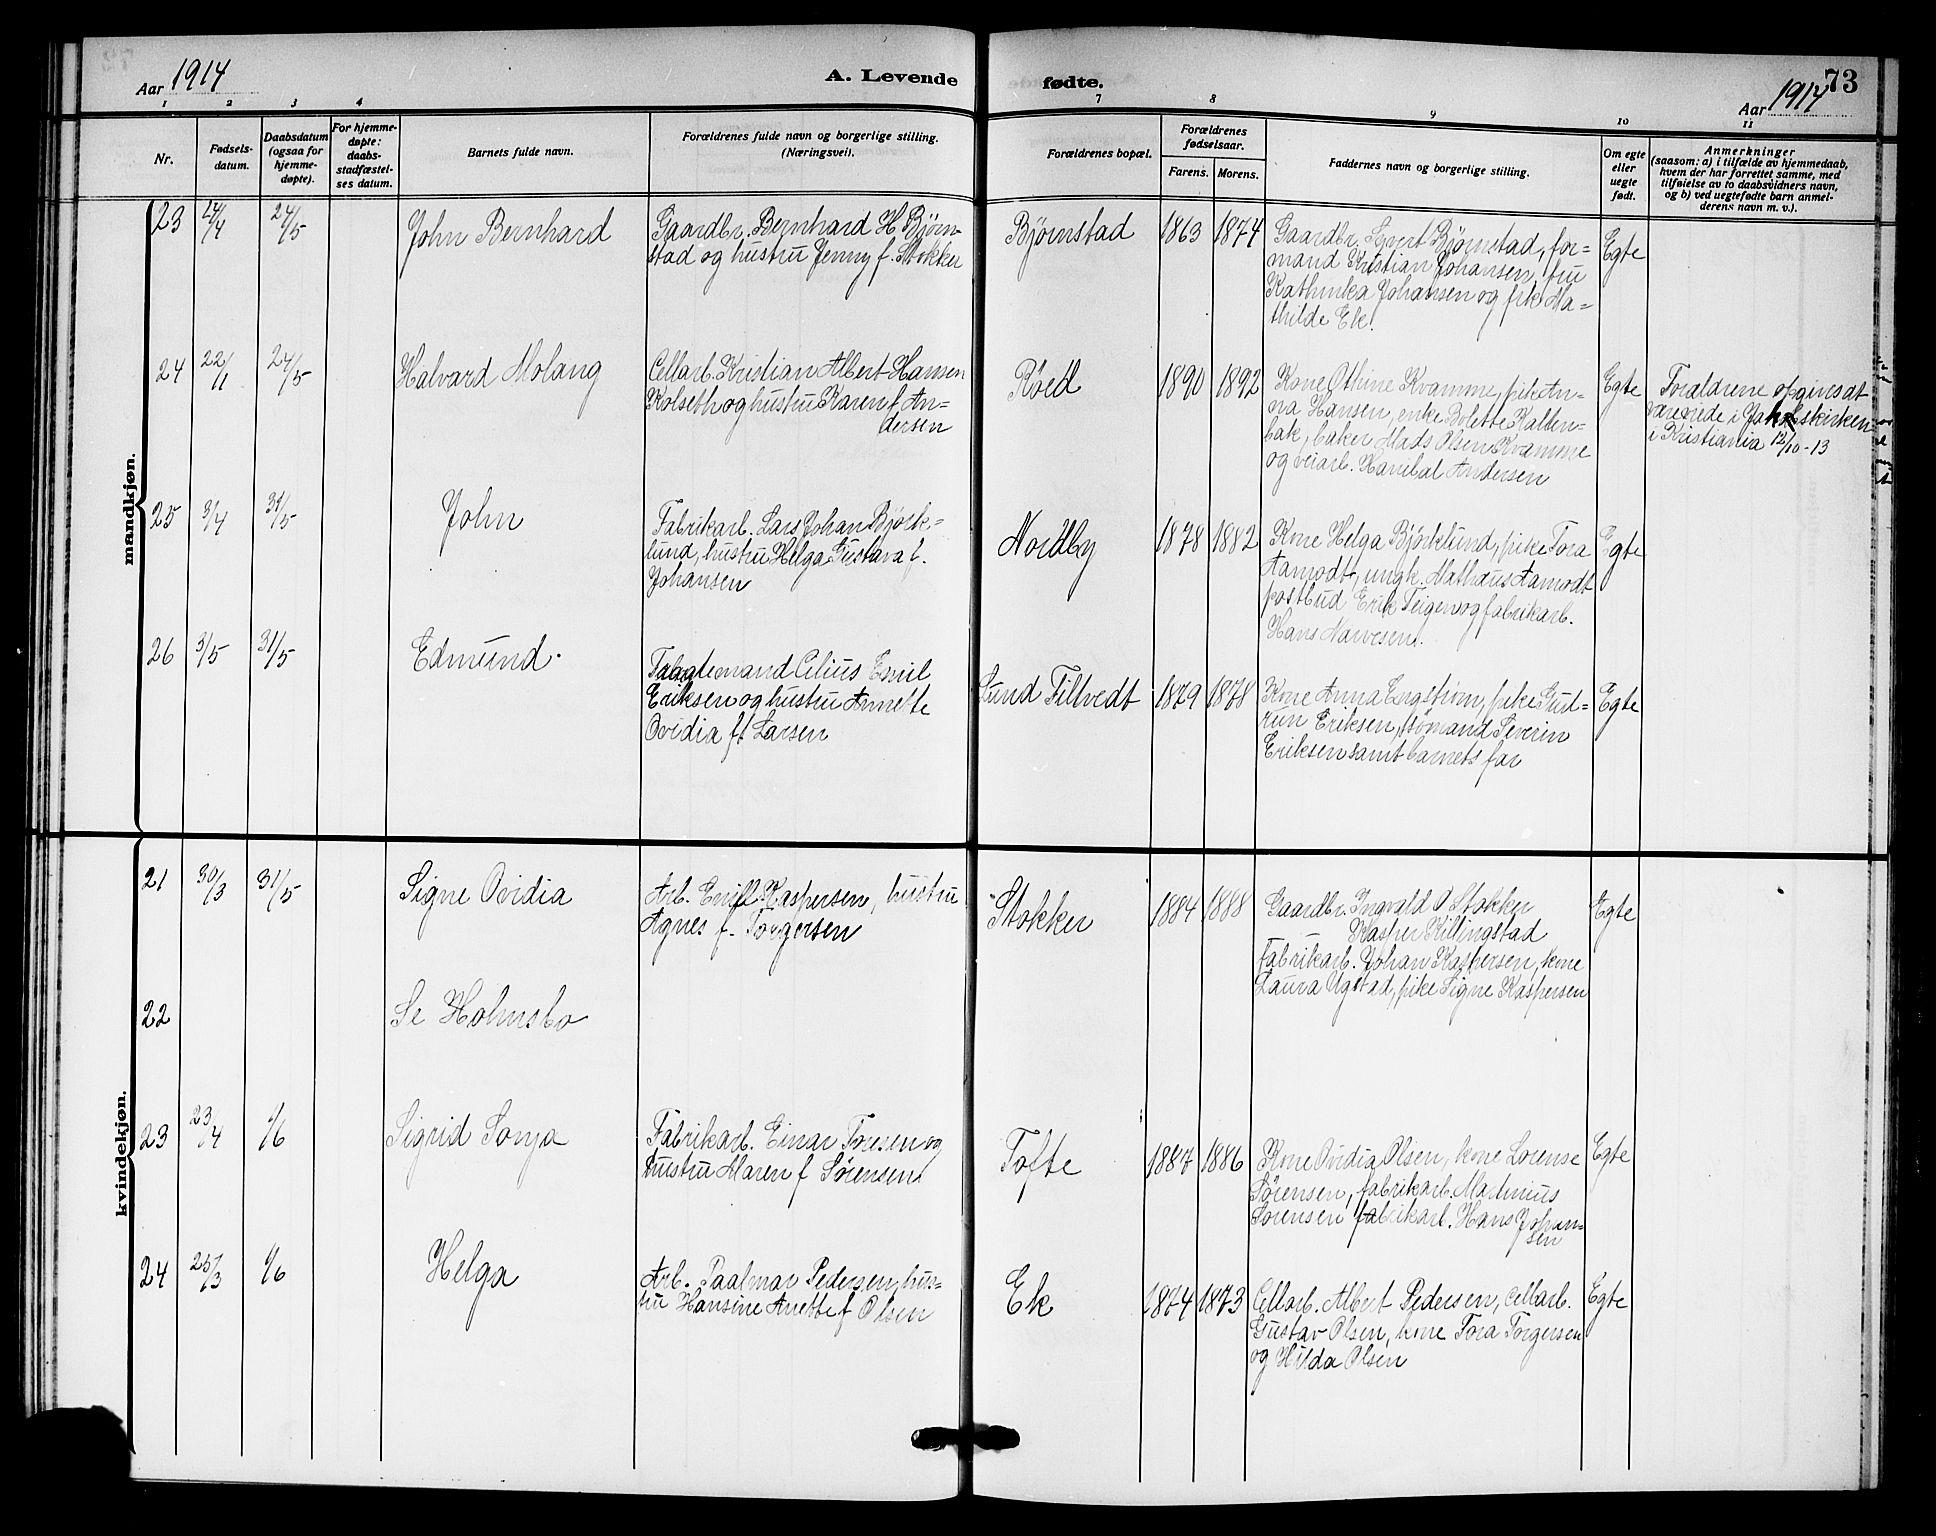 Aar 1914
A. Levende
fødte.
Aar 1914
73
1 2 3 4
7 8 9 10 11
Nr.
Fødsels-
datum.
Daabsdatum
(ogsaa for
hjemme-
døpte).
For hjemme-
døpte:
daabs-
stadfæstel-
ses datum.
Barnets fulde navn.
Forældrenes fulde navn og borgerlige stilling.
(Næringsvei).
Forældrenes bopæl.
Forældrenes
fødselsaar.
Farens. Morens.
Faddernes navn og borgerlige stilling.
Om egte
eller
uegte
født.
Anmerkninger
(saasom: a) i tilfælde av hjemmedaab,
hvem der har forrettet samme, med
tilføielse av to daabsvidners navn,
og b) ved uegtefødte barn anmel-
derens navn m. v.).
mandkjøn.
23
24/5
John Bernhard
Gaardbr. Bernhard H Bjørn-
stad og hustru Jenny f. Stokker
Bjørnstad
1863 1874
Gaardbr. Sivert Bjørnstad, for=
mand Kristian Johansen, fru
Kathinka Johansen og pik Ma=
thilde Ek.
Egte
24
22/11
24/5
Halvard Molang
Cellarb. Kristian Albert Hansen
Kolseth og hustru Karen f. An=
dersen
Røed
1890 1892
Kone Othine Kvamme, pike An-
na Hansen, enke Bolette Kallen-
bak, baker Mads Olsen Kvamme
og veiarb. Hanibal Andersen
Egte
Foraldrene opgives at
være viede i Jakobskirken
i Kristiania 12/10-13
25
3/4
31/5
John
Fabrikarb. Lars Johan Bjørk=
lund, hustru Helga Gustava f.
Johansen
Nordby
1878 1882
Kone Helga Bjørklund, pike Tora
Aamodt, ungk. Mathæus Aamodt
postbud Erik Teigen og fabrikarb.
Hans Narvesen.
Egte
26
3/5
31/5
Edmund.
Celius Emil
Eriksen og hustru Annette
Ovidia f. Larsen
Lund Filtvedt
1879 1878
Kone Anna Engstrøm, pike Gud=
run Eriksen, sømand Severin
Eriksen samt barnets far
Egte
kvindekjøn.
21
30/3
31/5
Signe Ovidia
Arb. Emil Kaspersen, hustru
Agnes f. Torgersen
Stokker
1884 1888
Gaardbr. Ingvald O Stokker
Kasper Killingstad
fabrikarb. Johan Kaspersen, kone
Laura Ugstad, pike Signe Kaspersen
Egte
22
Se Holmsbo
23
23/4
1/6
Sigrid Sonja
Fabrikarb. Einar Toresen og
hustru Maren f Sørensen
Tofte
1887 1886
Kone Ovidia Olsen, kone Lorense
Sørensen, fabrikarb. Mathius
Sørensen fabrikarb. Hans Johan-
sen
Egte
24
25/3
1/6
Helga
Arb. Paalmar Pedersen, hus=
tru Hansine Anette f Olsen
Ek
1874 1873
Cellarb. Albert Pedersen, cellarb.
Gustav Olsen, kone Tora Torgersen
og Hilda Olsen
Egte